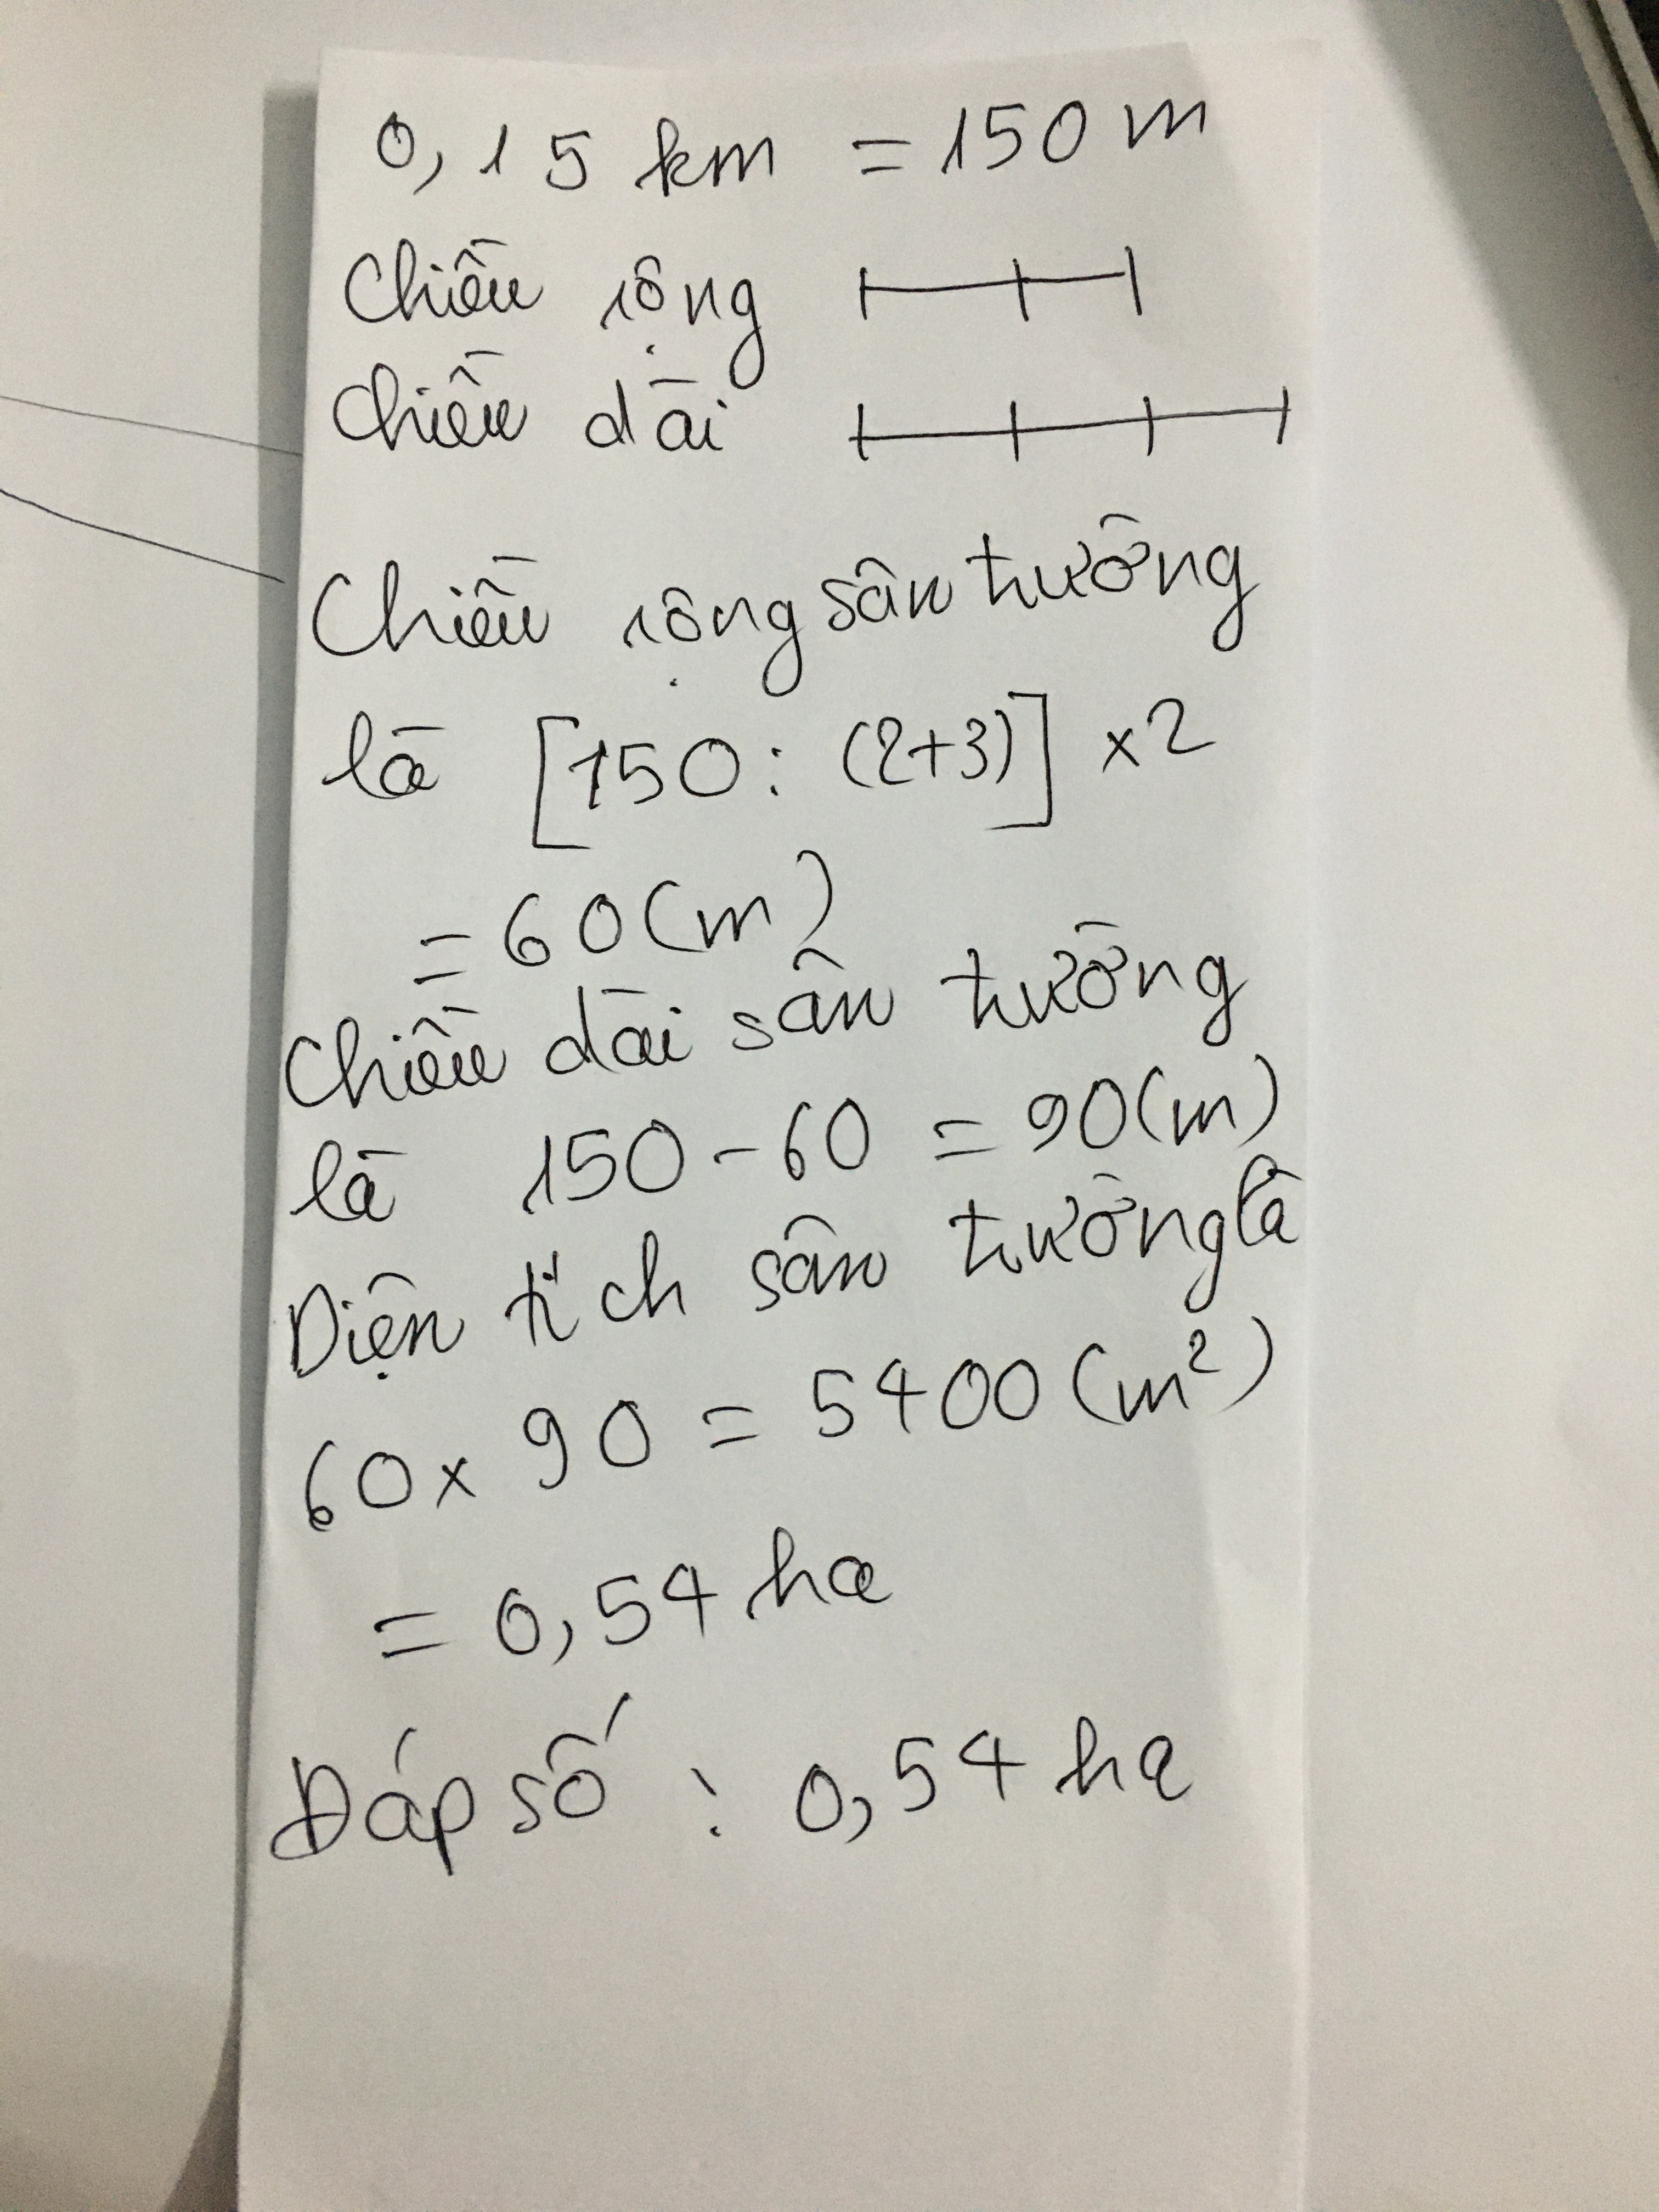 0,15 km = 150 m
Chiều rộng
Chiều dài
Chiều rộng sân trường
là [150 : (2+3)] x 2
= 60 (m)
Chiều dài sân trường
là 150 - 60 = 90 (m)
Diện tích sân trường là
60 x 90 = 5400 (m²)
= 0,54 ha
Đáp số : 0,54 ha